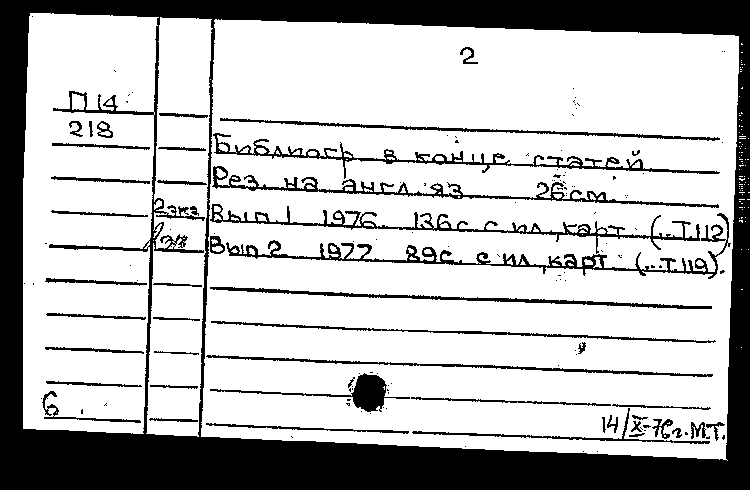 2
П 14
218
Библиогр. в конце статей
Рез. на англ. яз. 26 см.
2 экз. Вып. 1 1976. 136 с. с ил., карт. (..Т.112).
1 эк Вып. 2 1977 89 с. с ил., карт. (...Т.119).
6
14/X-76 г. М.Т.